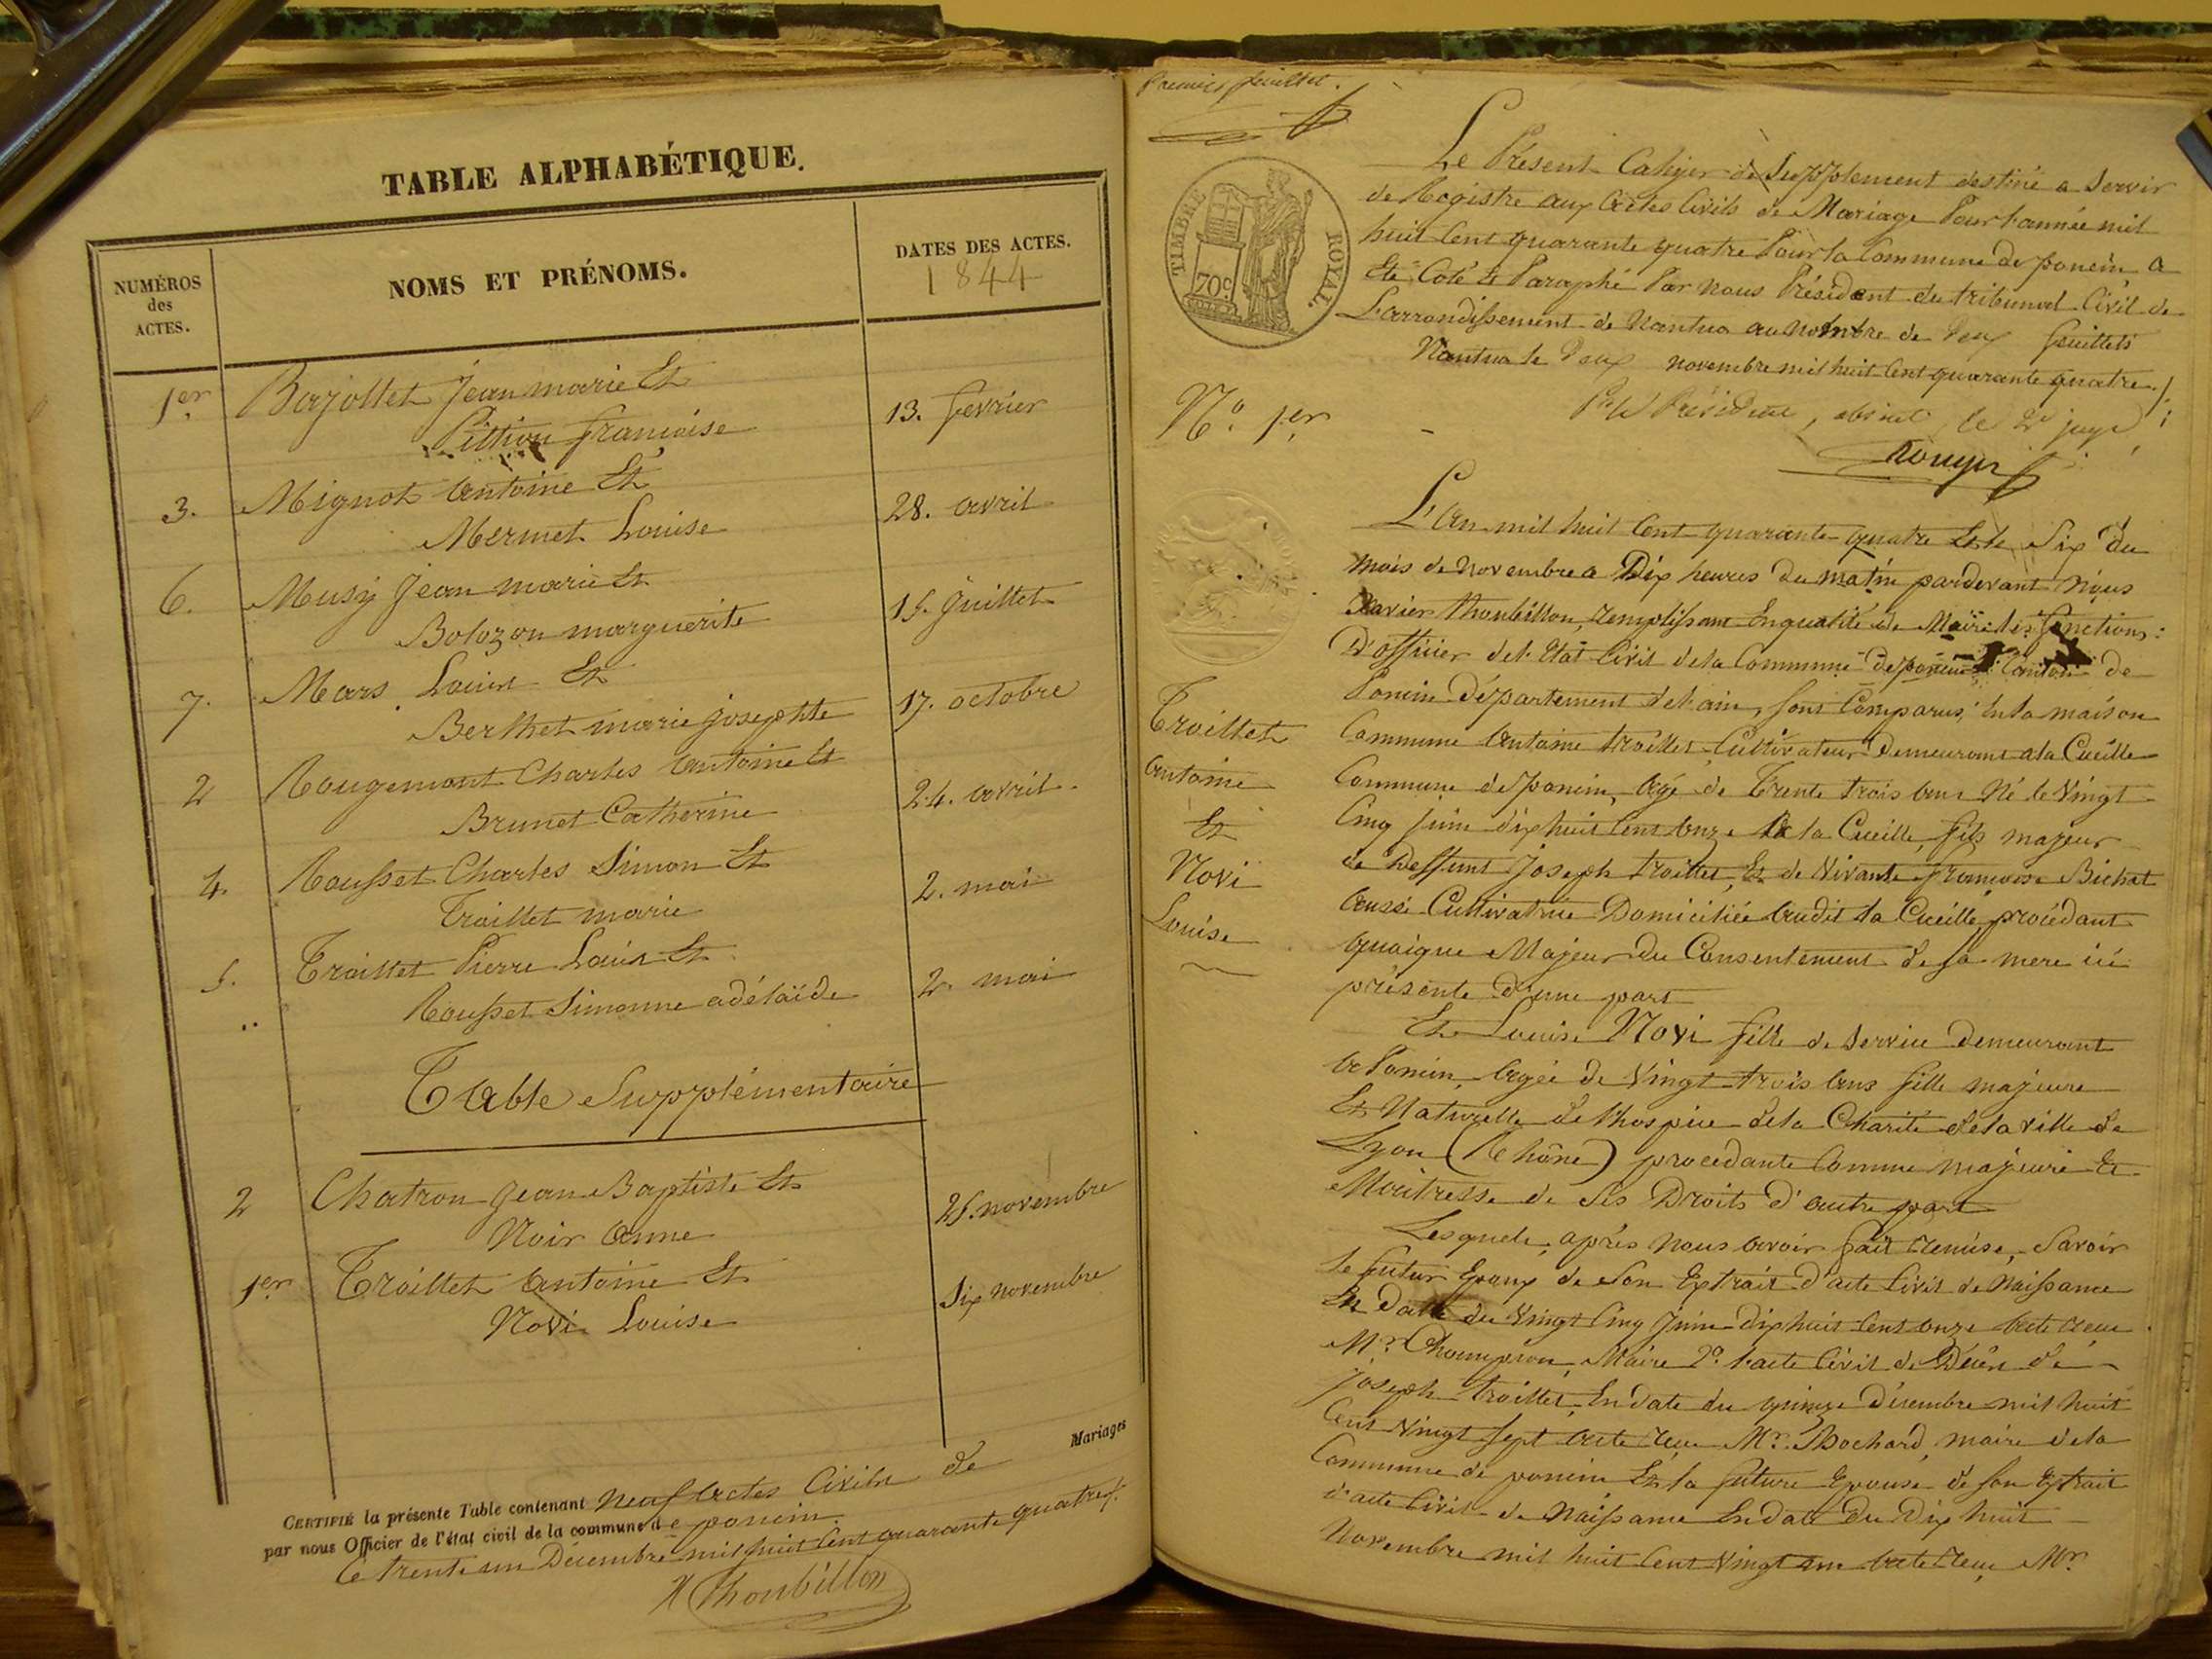 TABLE ALPHABÉTIQUE.
NUMÉROS
des
ACTES.
NOMS ET PRÉNOMS.
DATES DES ACTES.
1844
1er Barjollet Jean marie Et
Pittion françoise
13. fevrier
3. Mignot antoine Et
Mermet Louise
28. avril
6. Musy Jean marie Et
Bolozon marguerite
15. juillet
7. Mars Louis Et
Berthet marie josephte
17. octobre
2 Rougemont Charles antoine Et
Brunet Catherine
24. avril.
4. Rousset Charles Simon Et
Troillet marie
2. mai
5. Troillet Pierre Louis Et
Rousset Simonne adélaïde
2. mai
Table Supplémentaire
2 Chatron Jean Baptiste Et
Noir anne
25. novembre
1er Troillet antoine Et
Novi Louise
Six novembre
Mariages
CERTIFIÉ la présente Table contenant neuf actes Civils de
par nous Officier de l'état civil de la commune de poncin.
Ce trente un Décembre mil huit Cent quarante quatre.
X Thoubillon
Premier feuillet.
TIMBRE ROYAL.
70c
Le Présent Cahier de Supplement destiné a Servir
de Registre aux actes Civils de Mariage Pour l'année mil
huit Cent quarante quatre Pour la Commune de poncin a
Eté Coté & Paraphé Par nous Président du tribunal Civil de
L'arrondissement de Nantua au nombre de Deux feuillets
Nantua le Deux novembre mil huit Cent quarante quatre./.
Pr le Président, absent, le 2e juge
N.o 1er
L'an mil huit Cent quarante quatre Et le Six du
mois de Novembre a Dix heures du matin pardevant Nous
Xavier Thoubillon, remplissant En qualité de Maire les fonctions
D'officier de l'Etat Civil de la Commune de poncin Canton de
Poncin Département de l'ain, sont Comparus, En la maison
Commune antoine troillet, Cultivateur Demeurant a la Cueille
Commune de poncin, agé de Trente trois ans Né le Vingt
Cinq juin dix huit Cent onze a la Cueille, fils majeur
de Deffunt Joseph troillet, Et de Vivante françoise Bichat
aussi Cultivatrice Domiciliée audit la Cueille, procédant
quoique Majeur du Consentement de sa mere ici
présente D'une part
Troillet
antoine
Et
Novi
Louise
Et Louise Novi fille de Service Demeurant
a Poncin, agée de Vingt trois ans fille majeure
Et Naturelle de l'hospice de la Charité de la ville de
Lyon (Rhône) procédante Comme majeure Et
Maitresse de Ses Droits D'autre part
Lesquels, après Nous avoir fait remise, Savoir
le futur Epoux de Son Extrait d'acte Civil de Naissance
En date du Vingt Cinq Juin dix huit Cent onze acte recu
Mr. Champion, Maire 2o. l'acte Civil de Décès de
Joseph troillet, En date du quinze Décembre mil huit
Cent Vingt Sept acte recu Mr. Bochard, maire de la
Commune de poncin Et la future Epouse de son Extrait
d'acte Civil de Naissance En date Du Dix huit
Novembre mil huit Cent Vingt un acte recu Mr.